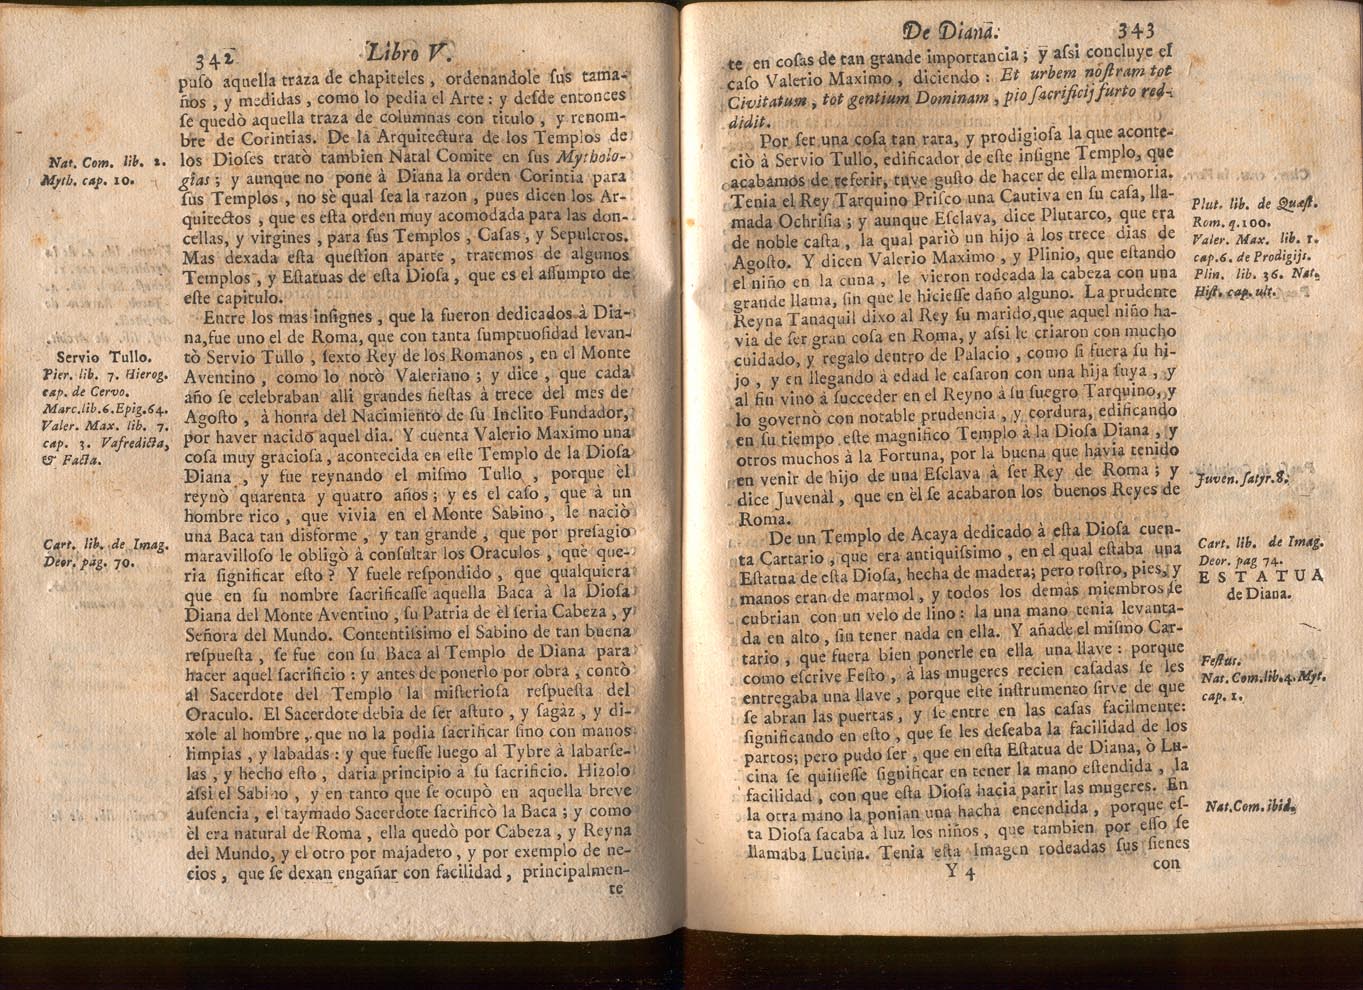 342 Libro V.
puso aquella traza de chapiteles, ordenandole sus tama-
ños, y medidas, como lo pedia el Arte: y desde entonces
se quedò aquella traza de columnas con titulo, y renom-
bre de Corintias. De la Arquitectura de los Templos de
los Dioses tratò tambien Natal Comite en sus Mytholo-
gîas; y aunque no pone à Diana la orden Corintia para
sus Templos, no sè qual sea la razon, pues dicen los Ar-
quitectos, que es esta orden muy acomodada para las don-
cellas, y virgines, para sus Templos, Casas, y Sepulcros.
Mas dexada esta question aparte, tratemos de algunos
Templos, y Estatuas de esta Diosa, que es el assumpto de
este capitulo.
Entre los mas insignes, que la fueron dedicados à Dia-
na, fue uno el de Roma, que con tanta sumptuosidad levan-
tò Servio Tullo, sexto Rey de los Romanos, en el Monte
Aventino, como lo notò Valeriano; y dice, que cada
año se celebraban alli grandes fiestas à trece del mes de
Agosto, à honra del Nacimiento de su Inclito Fundador,
por haver nacido aquel dia. Y cuenta Valerio Maximo una
cosa muy graciosa, acontecida en este Templo de la Diosa
Diana, y fue reynando el mismo Tullo, porque èl
reynò quarenta y quatro años; y es el caso, que à un
hombre rico, que vivia en el Monte Sabino, le naciò
una Baca tan disforme, y tan grande, que por presagio
maravilloso le obligò à consultar los Oraculos, què que-
ria significar esto? Y fuele respondido, que qualquiera
que en su nombre sacrificasse aquella Baca à la Diosa
Diana del Monte Aventino, su Patria de èl seria Cabeza, y
Señora del Mundo. Contentissimo el Sabino de tan buena
respuesta, se fue con su Baca al Templo de Diana para
hacer aquel sacrificio: y antes de ponerlo por obra, contò
al Sacerdote del Templo la misteriosa respuesta del
Oraculo. El Sacerdote debia de ser astuto, y sagàz, y di-
xole al hombre, que no la podia sacrificar sino con manos
limpias, y labadas: y que fuesse luego al Tybre à labarse-
las, y hecho esto, daria principio à su sacrificio. Hizolo
assi el Sabino, y en tanto que se ocupò en aquella breve
ausencia, el taymado Sacerdote sacrificò la Baca; y como
èl era natural de Roma, ella quedò por Cabeza, y Reyna
del Mundo, y el otro por majadero, y por exemplo de ne-
cios, que se dexan engañar con facilidad, principalmen-
te
Nat. Com. lib. 2.
Myth. cap. 10.
Servio Tullo.
Pier. lib. 7. Hierog.
cap. de Cervo.
Marc. lib. 6. Epig. 64.
Valer. Max. lib. 7.
cap. 3. Vafredicta,
& Facta.
Cart. lib. de Imag.
Deor. pag. 70.
De Diana. 343
te en cosas de tan grande importancia; y assi concluye el
caso Valerio Maximo, diciendo: Et urbem nostram tot
Civitatum, tot gentium Dominam, pio sacrificij furto red-
didit.
Por ser una cosa tan rara, y prodigiosa la que aconte-
ciò à Servio Tullo, edificador de este insigne Templo, que
acabamos de referir, tuve gusto de hacer de ella memoria.
Tenia el Rey Tarquino Prisco una Cautiva en su casa, lla-
mada Ochrisia; y aunque Esclava, dice Plutarco, que era
de noble casta, la qual pariò un hijo à los trece dias de
Agosto. Y dicen Valerio Maximo, y Plinio, que estando
el niño en la cuna, le vieron rodeada la cabeza con una
grande llama, sin que le hiciesse daño alguno. La prudente
Reyna Tanaquil dixo al Rey su marido, que aquel niño ha-
via de ser gran cosa en Roma, y assi le criaron con mucho
cuidado, y regalo dentro de Palacio, como si fuera su hi-
jo, y en llegando à edad le casaron con una hija suya, y
al fin vino à succeder en el Reyno à su suegro Tarquino, y
lo governò con notable prudencia, y cordura, edificando
en su tiempo este magnifico Templo à la Diosa Diana, y
otros muchos à la Fortuna, por la buena que havia tenido
en venir de hijo de una Esclava à ser Rey de Roma; y
dice Juvenal, que en èl se acabaron los buenos Reyes de
Roma.
De un Templo de Acaya dedicado à esta Diosa cuen-
ta Cartario, que era antiquissimo, en el qual estaba una
Estatua de esta Diosa, hecha de madera; pero rostro, pies, y
manos eran de marmol, y todos los demàs miembros se
cubrian con un velo de lino: la una mano tenia levanta-
da en alto, sin tener nada en ella. Y añade el mismo Car-
tario, que fuera bien ponerle en ella una llave: porque
como escrive Festo, à las mugeres recien casadas se les
entregaba una llave, porque este instrumento sirve de que
se abran las puertas, y se entre en las casas facilmente:
significando en esto, que se les deseaba la facilidad de los
partos; pero pudo ser, que en esta Estatua de Diana, ò Lu-
cina se quisiesse significar en tener la mano estendida, la
facilidad, con que esta Diosa hacia parir las mugeres. En
la otra mano la ponian una hacha encendida, porque es-
ta Diosa sacaba à luz los niños, que tambien por esso se
llamaba Lucina. Tenia esta Imagen rodeadas sus sienes
Y 4 con
Plut. lib. de Quæst.
Rom. q. 100.
Valer. Max. lib. 1.
cap. 6. de Prodigijs.
Plin. lib. 36. Nat.
Hist. cap. ult.
Juven. satyr. 8.
Cart. lib. de Imag.
Deor. pag 74.
ESTATUA
de Diana.
Festus.
Nat. Com. lib. 4. Myt.
cap. 1.
Nat. Com. ibid.